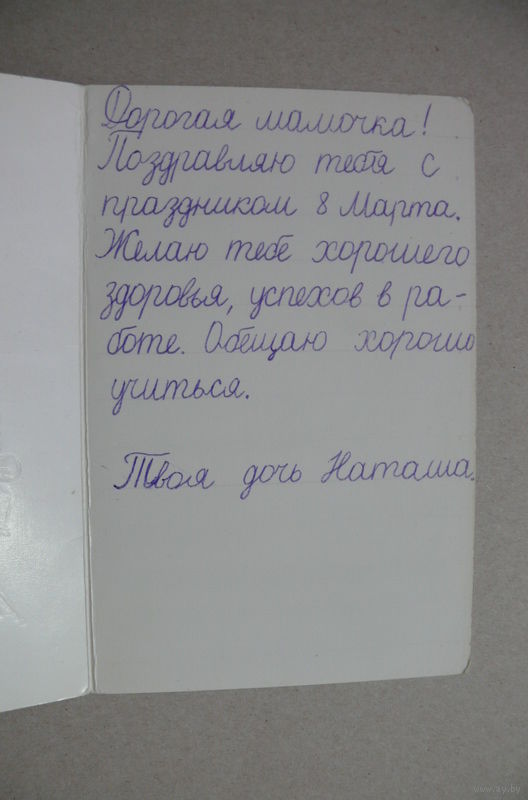 Дорогая мамочка!
Поздравляю тебя с
праздником 8 Марта.
Желаю тебе хорошего
здоровья, успехов в ра-
боте. Обещаю хорошо
учиться.
Твоя дочь Наташа.
www.ay.by